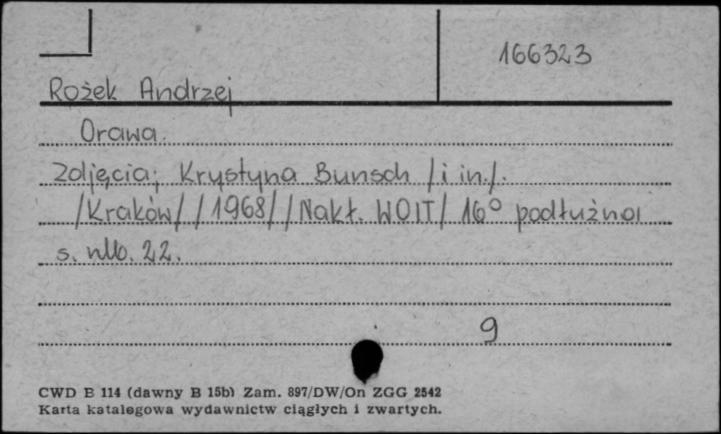 166323
Rożek Andrzej
Orawa.
Zdjęcia; Krystyna Bunsch /i in./.
/Kraków/ /1968/ /Nakł. WOIT/ 16° podłużna
s. nlb. 22.
9
CWD B 114 (dawny B 15b) Zam. 897/DW/On ZGG 2542
Karta katalogowa wydawnictw ciągłych i zwartych.